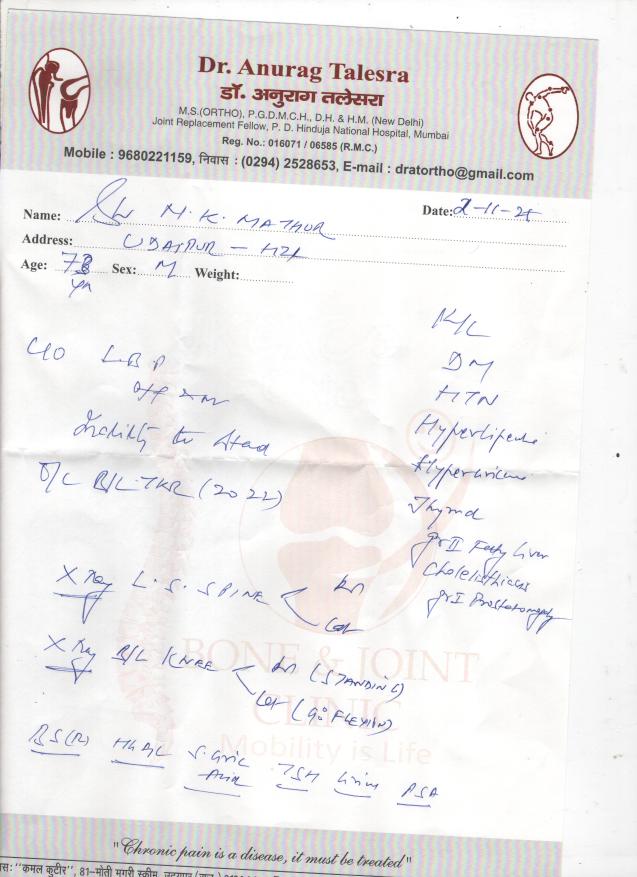 Dr. Anurag Talesra
डॉ. अनुराग तलेसरा
M.S.(ORTHO), P.G.D.M.C.H., D.H. & H.M. (New Delhi)
Joint Replacement Fellow, P. D. Hinduja National Hospital, Mumbai
Reg. No.: 016071 / 06585 (R.M.C.)
Mobile : 9680221159, निवास : (0294) 2528653, E-mail : dratortho@gmail.com
Name: Sh M. K. MATHUR
Date: 2-11-25
Address: UDAIPUR -
Age: Sex: M Weight:
K/C
DM
HTN
Hyperlipidemia
Hyperuricemia
Thyroid
Gr II Fatty Liver
Cholelithiasis
Gr I Prostatomegaly
C/O L.B.P
Inability to stand
O/C B/L TKR (2022)
X Ray L.S. SPINE
AP
Lat
X Ray B/L KNEE
AP (STANDING)
Lat (90° FLEXION)
BONE & JOINT
CLINIC
Mobility is Life
BS(R) HbA1C S. Uric Acid TSH PSA
"Chronic pain is a disease, it must be treated"
"कमल कुटीर", 81–मोती मगरी स्कीम,